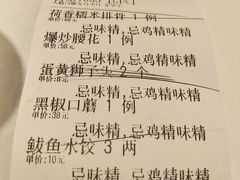 荷香糯米排骨 1 例
单价:50元
忌味精,忌鸡精味精
爆炒腰花 1 例
单价:40元
忌味精,忌鸡精味精
蛋黄狮子头 2 个
单价:8元
忌味精,忌鸡精味精
黑椒口蘑 1 例
单价:38元
忌味精,忌鸡精味精
鲅鱼水饺 3 两
单价:10元
忌味精,忌鸡精味精